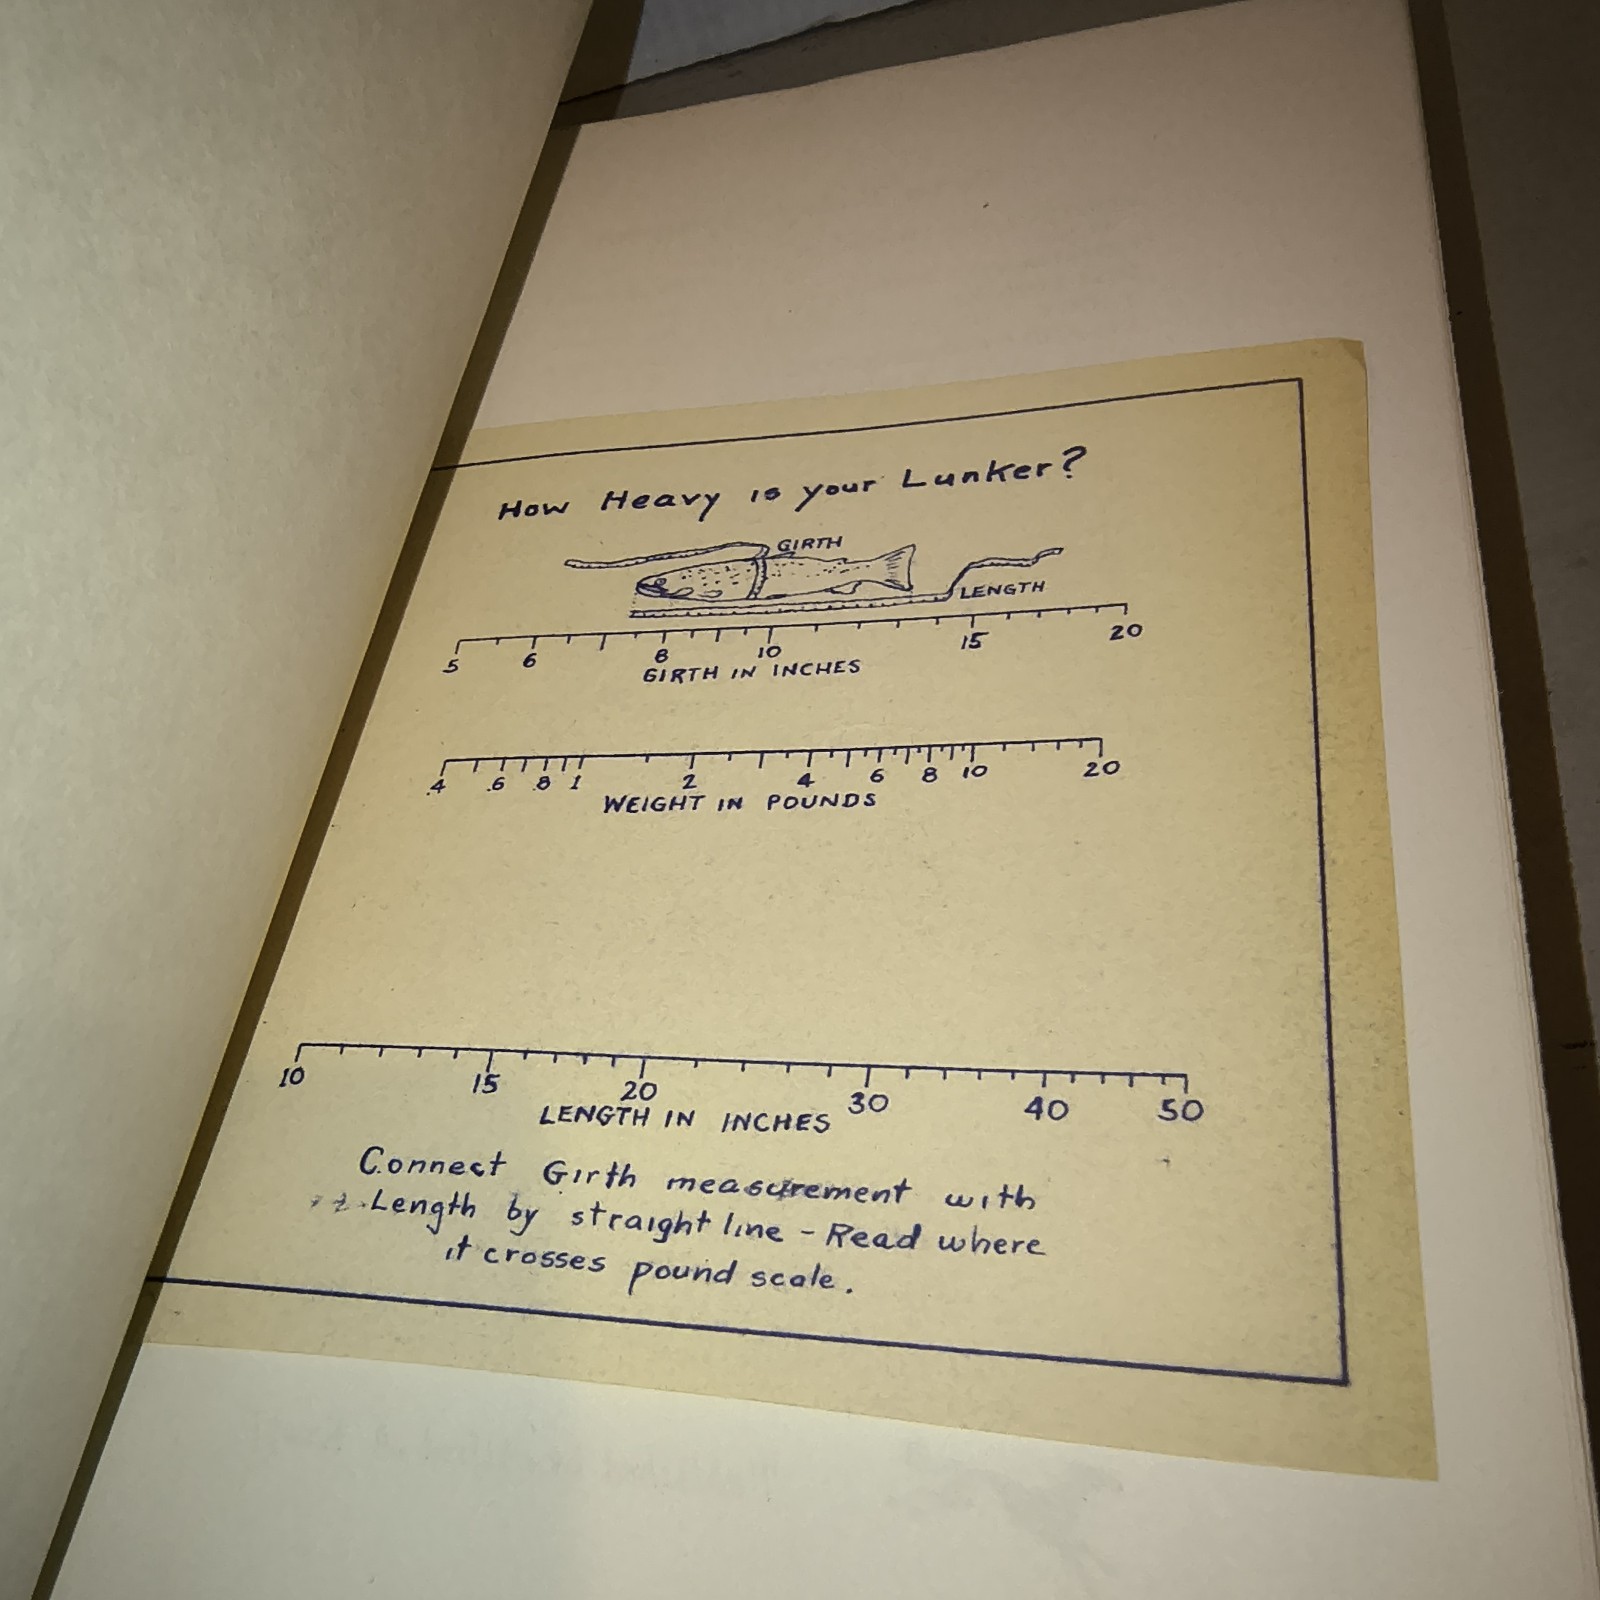 How Heavy is your Lunker?
GIRTH
LENGTH
5 6 8 10 15 20
GIRTH IN INCHES
.4 .6 .8 1 2 4 6 8 10 20
WEIGHT IN POUNDS
10 15 20 30 40 50
LENGTH IN INCHES
Connect Girth measurement with
Length by straight line - Read where
it crosses pound scale.